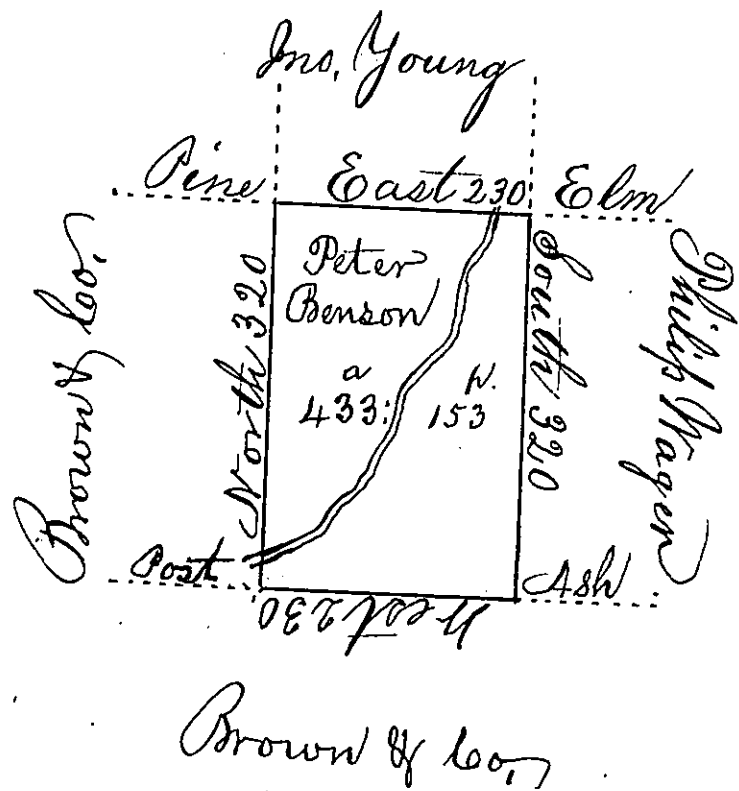 Jno. Young
Pine East 230 Elm
Brown & Co,
North 320
Peter
Benson
a p.
433: 153
South 320
Philip Wager
Post
Ash
West 230
Brown & Co,